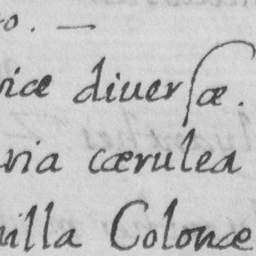 o. —
ricæ diuersæ.
aria cærulea
uilla Colonæ